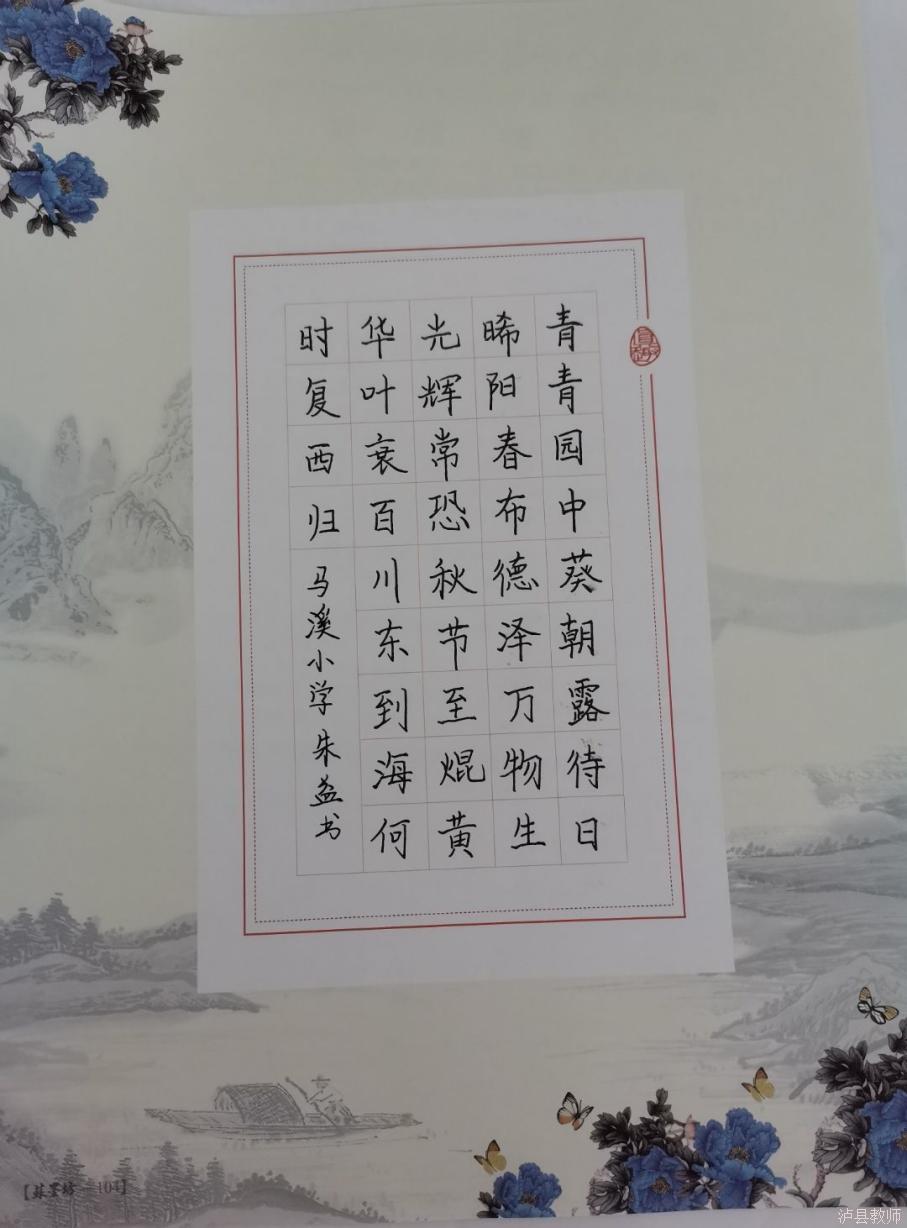 青青园中葵朝露待日
晞阳春布德泽万物生
光辉常恐秋节至焜黄
华叶衰百川东到海何
时复西归
马溪小学朱益书
【苏墨坊—104】
泸县教师